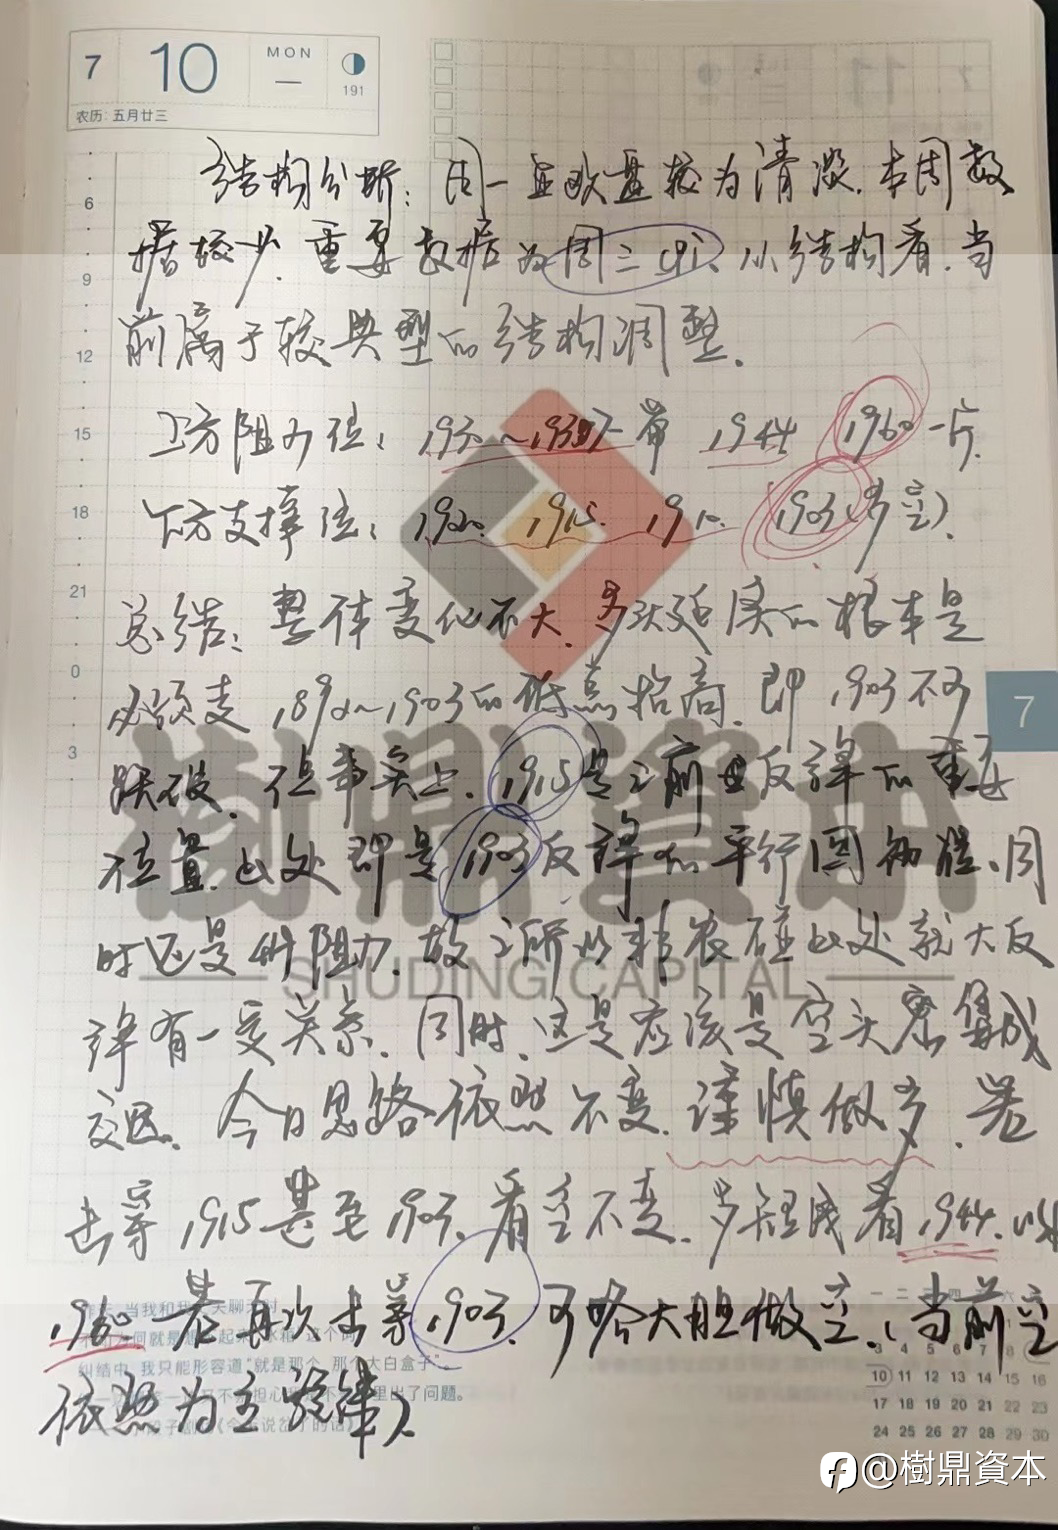 7 10 MON 一 191
农历: 五月廿三
结构分析: 周一亚欧盘较为清淡. 本周数
据较少. 重要数据为周三CPI. 从结构看. 当
前属于较典型的结构调整.
上方阻力位: 1930~1937一带 1944 1960一片.
下方支撑位: 1920. 1915. 1910. 1903(多空)
总结: 整体变化不大. 多头延续的根本是
必须支 1892~1903的低点抬高. 即 1903不可
跌破. 但事实上. 1915是之前 反弹的重要
位置. 此处即是1903反弹的平行 同
时还是 阻力. 故之所以非农碰此处就大反
弹有一定关系. 同时. 这是应该是空头密集成
交区. 今日思路依照不变. 谨慎做多. 若
击穿 1915甚至1903. 看空不变. 多短线看1944.
1960 若再次击穿1903. 可略大胆做空. (当前空
依照为主旋律)
6
9
12
15
18
21
0
3
7
樹鼎資本
SHUDING CAPITAL
当我和 天聊
何就是想 起
纠结中, 我只能形容道"就是那个, 那个大白盒子"。
担心 里出了问题。
一 二 四 六
3 4 5 6 7 8
10 11 12 13 14 15 16
17 18 19 20 21 22 23
24 25 26 27 28 29 30
@樹鼎資本